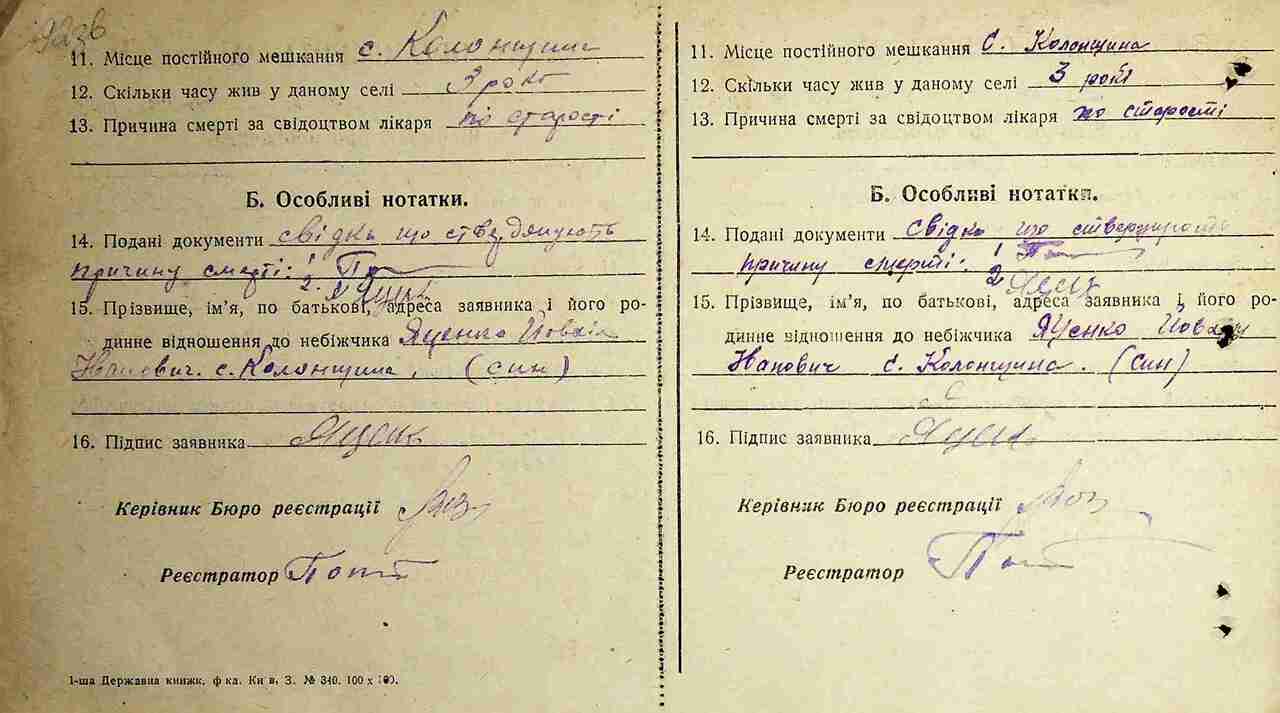 11. Місце постійного мешкання с. Колонщина
12. Скільки часу жив у даному селі 3 роки
13. Причина смерті за свідоцтвом лікаря по старості
Б. Особливі нотатки.
14. Подані документи свідки що стверджують
причину смерті: 1
2.
15. Прізвище, ім’я, по батькові, адреса заявника і його ро-
динне відношення до небіжчика Яценко
Іванович. с. Колонщина, (син)
16. Підпис заявника
Керівник Бюро реєстрації
Реєстратор
1-ша Державна книжк. ф-ка. Київ. З. № 340. 100 х 100.
11. Місце постійного мешкання с. Колонщина
12. Скільки часу жив у даному селі 3 роки
13. Причина смерті за свідоцтвом лікаря по старості
Б. Особливі нотатки.
14. Подані документи свідки що стверджують
причину смерті: 1
2
15. Прізвище, ім’я, по батькові, адреса заявника і його ро-
динне відношення до небіжчика Яценко
Іванович с. Колонщина. (син)
16. Підпис заявника
Керівник Бюро реєстрації
Реєстратор